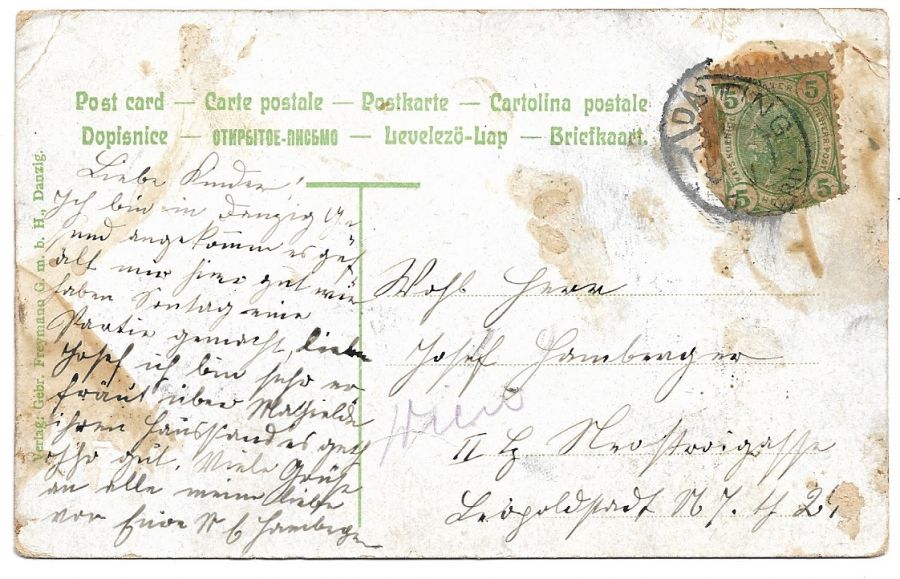 Post card — Carte postale — Postkarte — Cartolina postale
Dopisnice — ОТКРЫТОЕ-ПИСЬМО — Levelező-Lap — Briefkaart.
Verlag, Gebr. Freymann G. m. b. H., Danzig.
5 5
5 5
Liebe Kinder!
Ich bin in Danzig Ge
und angekomm es gef
alt mir hier gut wir
haben Sontag eine
Partie gemacht, liebe
Josef ich bin sehr er
fraut über Mathielde
ihren Hausstand es geth
gut. Viele Grüße
an alle meine liebe
von Eure Hamberger
Wohl Herr
Josef Hamberger
Wien
II Neostroigasse
Leopoldstadt N 7. th 24